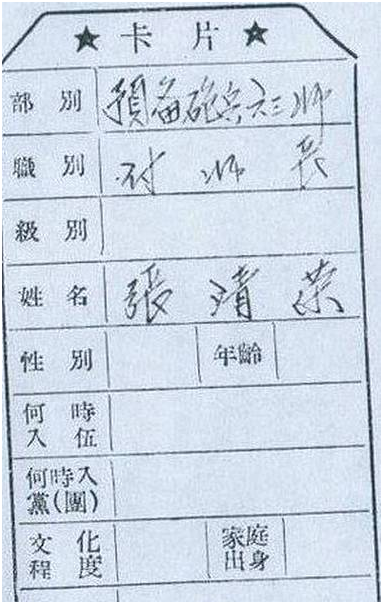 ★ 卡片 ★
部別 預备砲兵六三师
職別 付师長
級別
姓名 張靖荣
性別 年齡
何時入伍
何時入黨(團)
文化程度 家庭出身